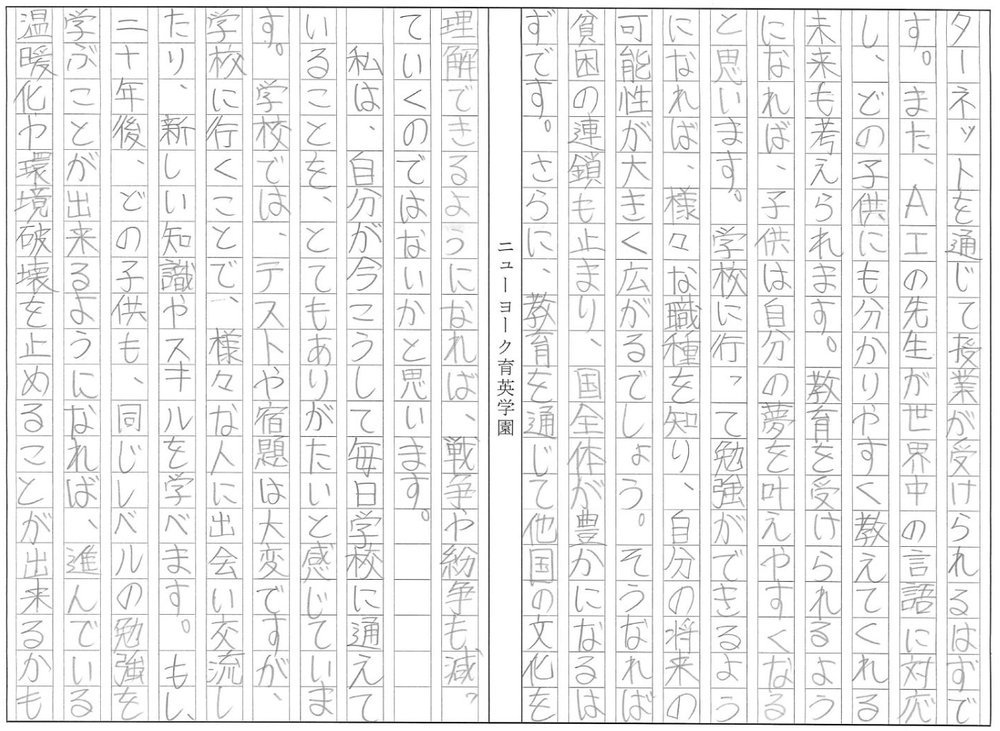 ターネットを通じて授業が受けられるはずで
す。また、AIの先生が世界中の言語に対応
し、どの子供にも分かりやすく教えてくれる
未来も考えられます。教育を受けられるよう
になれば、子供は自分の夢を叶えやすくなる
と思います。学校に行って勉強ができるよう
になれば、様々な職種を知り、自分の将来の
可能性が大きく広がるでしょう。そうなれば
貧困の連鎖も止まり、国全体が豊かになるは
ずです。さらに、教育を通じて他国の文化を
ニューヨーク育英学園
理解できるようになれば、戦争や紛争も減っ
ていくのではないかと思います。
私は、自分が今こうして毎日学校に通えて
いることを、とてもありがたいと感じていま
す。学校では、テストや宿題は大変ですが、
学校に行くことで、様々な人に出会い交流し
たり、新しい知識やスキルを学べます。もし、
二十年後、どの子供も、同じレベルの勉強を
学ぶことが出来るようになれば、進んでいる
温暖化や環境破壊を止めることが出来るかも